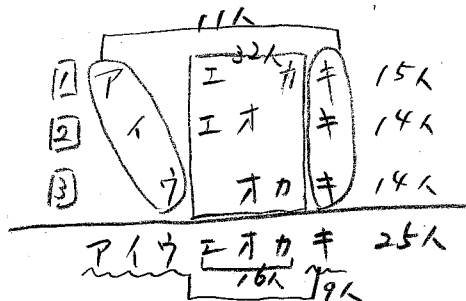 11人
32人
1 ア エ カ キ 15人
2 イ エ オ キ 14人
3 ウ オ カ キ 14人
アイウエオカキ 25人
16人
9人